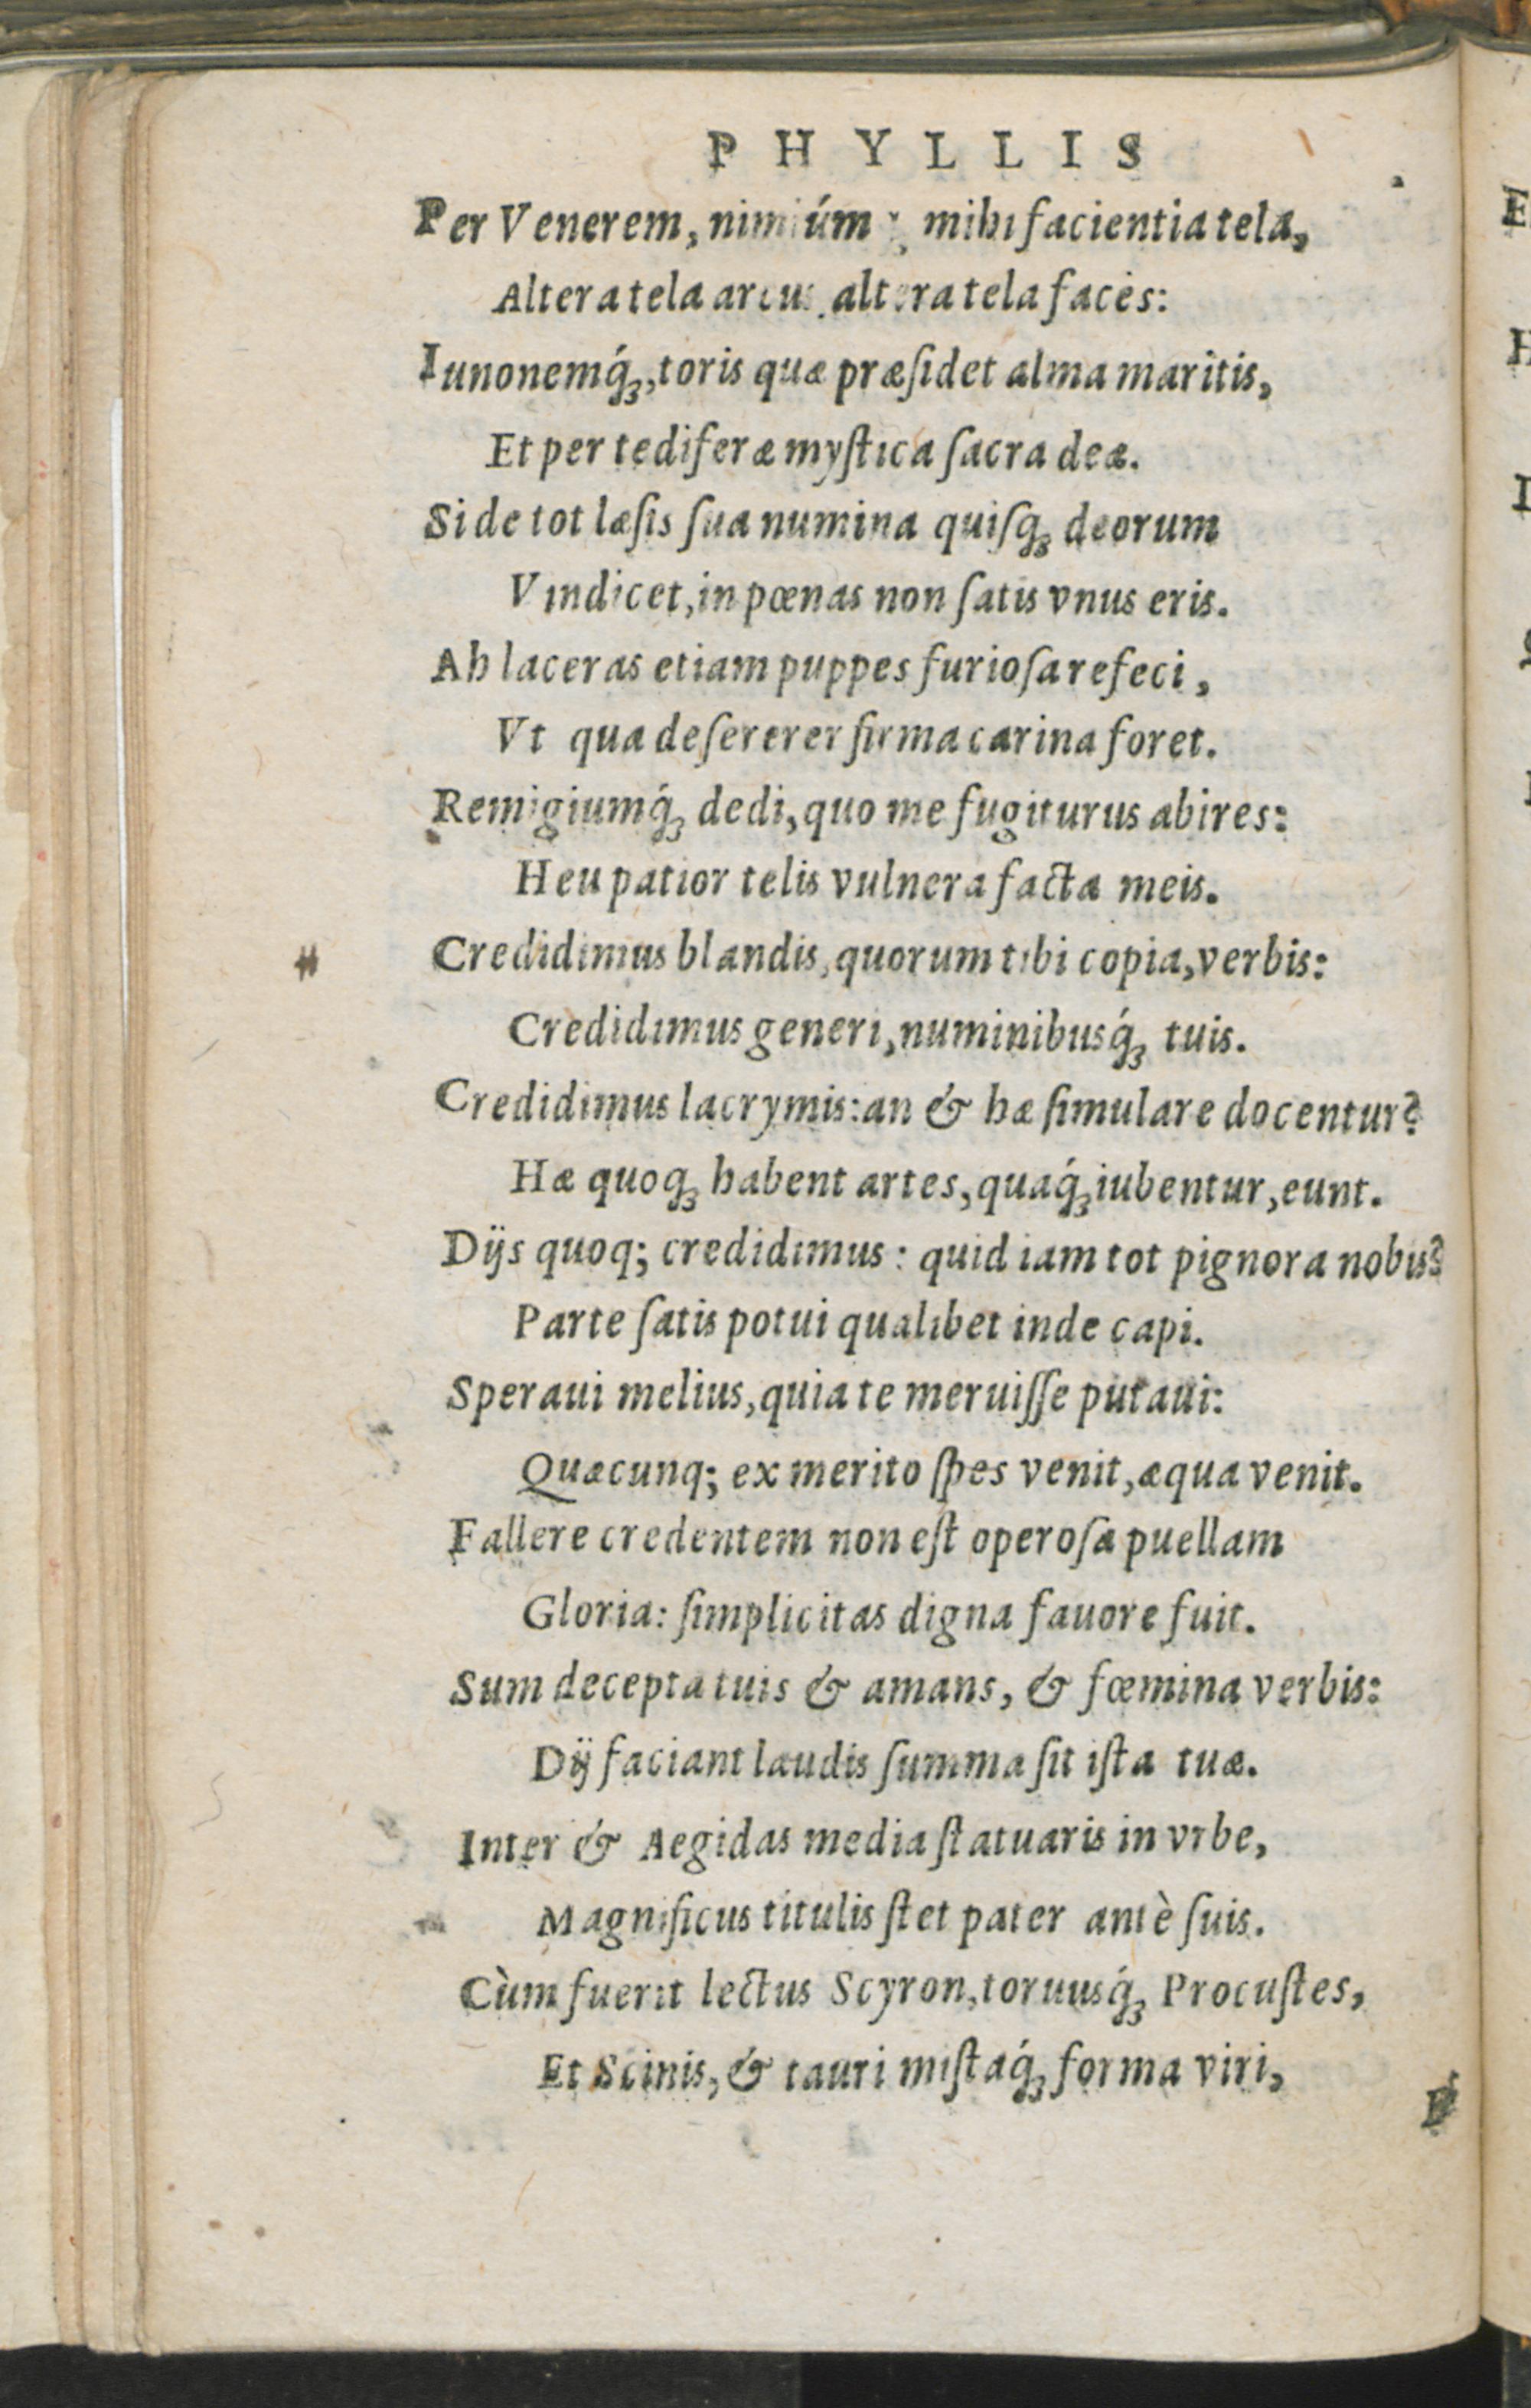 PHYLLIS
Per Venerem, nimiúm mihi facientia tela,
Altera tela arcus altera tela faces:
Iunonemq́ꝫ, toris quæ præſidet alma maritis,
Et per tediferæ myſtica ſacra deæ.
Si de tot læſis ſua numina quiſqꝫ deorum
Vindicet, in pœnas non ſatis vnus eris.
Ah laceras etiam puppes furioſa refeci,
Vt qua deſererer firma carina foret.
Remigiumq́ꝫ dedi, quo me fugiturus abires:
Heu patior telis vulnera facta meis.
Credidimus blandis, quorum tibi copia, verbis:
Credidimus generi, numinibusq́ꝫ tuis.
Credidimus lacrymis: an & hæ ſimulare docentur?
Hæ quoqꝫ habent artes, quaq́ꝫ iubentur, eunt.
Dijs quoq; credidimus: quid iam tot pignora nobis?
Parte ſatis potui qualibet inde capi.
Speraui melius, quia te meruiſſe putaui:
Quæcunq; ex merito ſpes venit, æqua venit.
Fallere credentem non eſt operoſa puellam
Gloria: ſimplicitas digna fauore fuit.
Sum decepta tuis & amans, & fœmina verbis:
Dij faciant laudis ſumma ſit iſta tuæ.
Inter & Aegidas media ſtatuaris in vrbe,
Magnificus titulis ſtet pater antè ſuis.
Cùm fuerit lectus Scyron, toruusq́ꝫ Procuſtes,
Et Scinis, & tauri miſtaq́ꝫ forma viri,